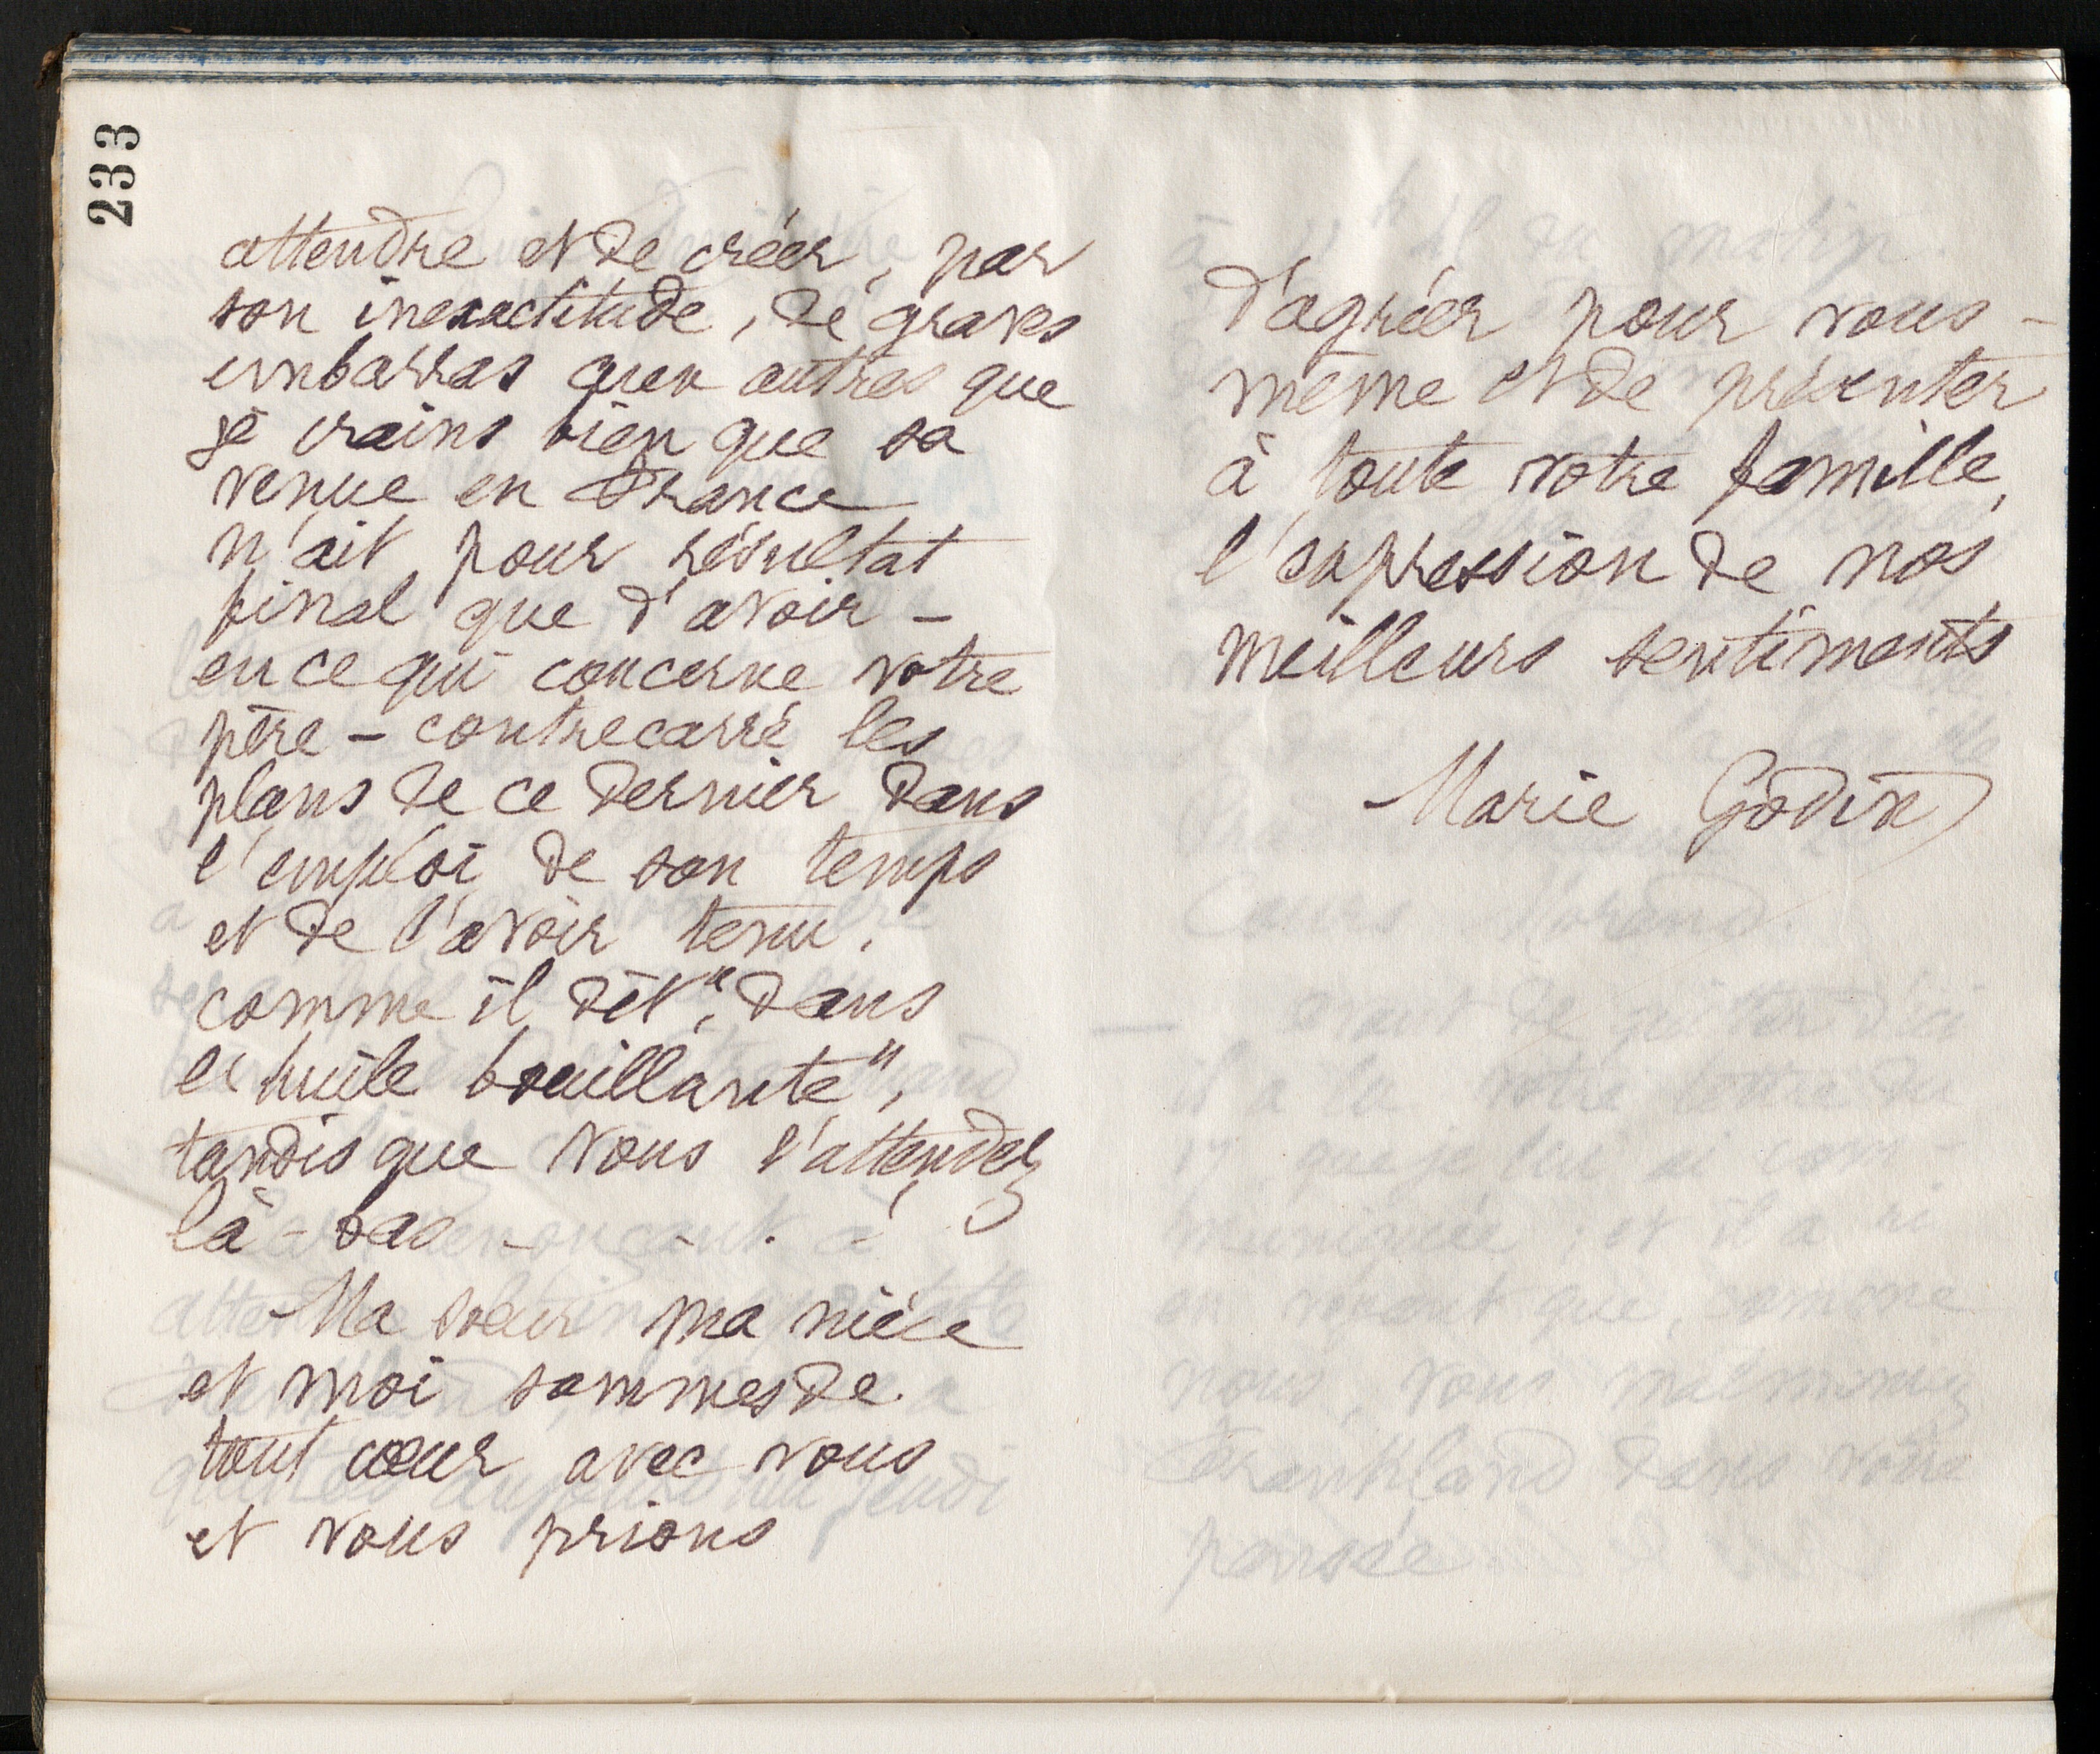 233
attendre et de créer, par
son inexactitude, de graves
embarras aux autres que
je crains bien que sa
venue en France
n'ait pour résultat
final que d'avoir -
en ce qui concerne votre
père - contrecarré les
plans de ce dernier dans
l'emploi de son temps
et de l'avoir tenu,
comme il dit, "dans
l'huile bouillante",
tandis que vous l'attendez
là-bas - - .
Ma sœur ma nièce
et moi sommes de
tout cœur avec vous
et vous prions
d'agréer pour vous-
même et de présenter
à toute votre famille,
l'expression de nos
meilleurs sentiments
Marie Godin